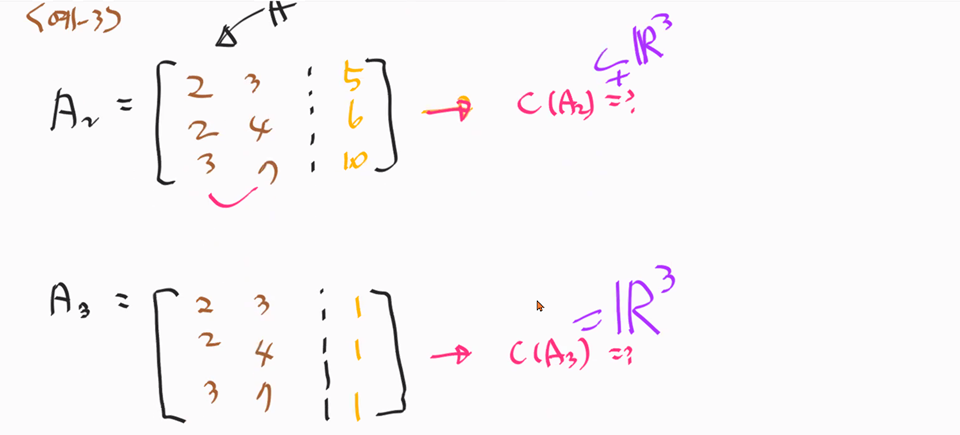 A
A₂ = [ 2 3 ⋮ 5
2 4 ⋮ 6
3 7 ⋮ 10 ] → C(A₂) =? ⊊ ℝ³
A₃ = [ 2 3 ⋮ 1
2 4 ⋮ 1
3 7 ⋮ 1 ] → C(A₃) =? = ℝ³